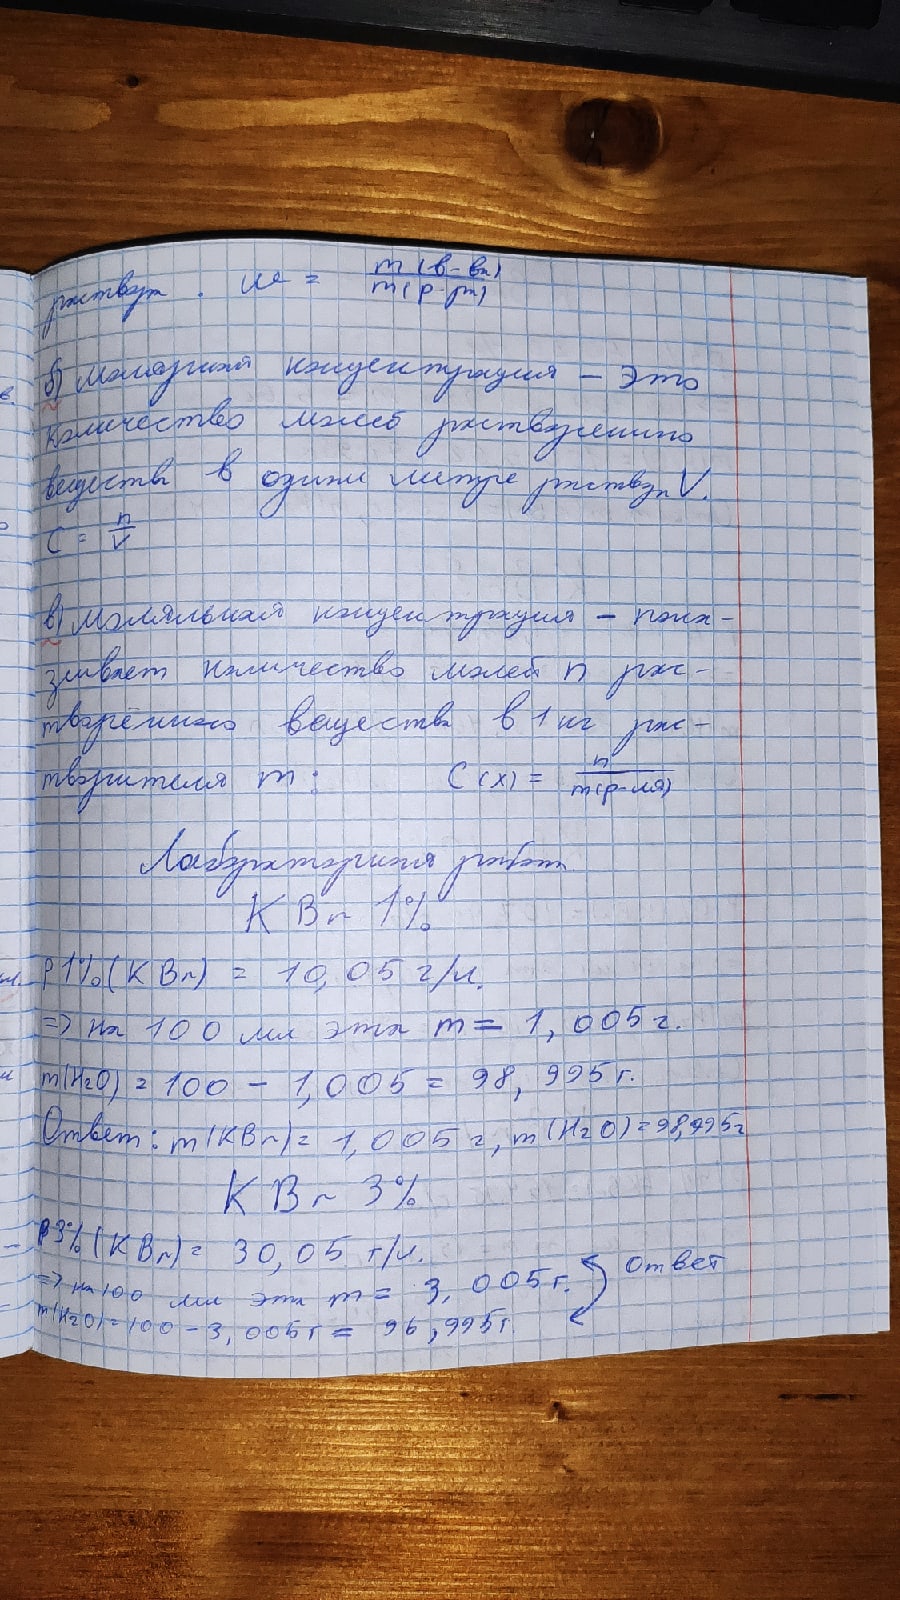 раствора. ω = m(в-ва) / m(р-ра)
б) Молярная концентрация – это
количество молей растворенного
вещества в одном литре раствора V.
C = n / V
в) Моляльная концентрация – пока-
зывает количество молей n рас-
творённого вещества в 1 кг рас-
творителя m: C(x) = n / m(р-ля)
Лабораторная работа
KBr 1%
ρ1%(KBr) = 10,05 г/л.
=> на 100 мл эта m = 1,005 г.
m(H2O) = 100 - 1,005 = 98,995 г.
Ответ: m(KBr) = 1,005 г, m(H2O) = 98,995 г
KBr 3%
ρ3%(KBr) = 30,05 г/л.
=> на 100 мл эта m = 3,005 г. ответ
m(H2O) = 100 - 3,005 г = 96,995 г